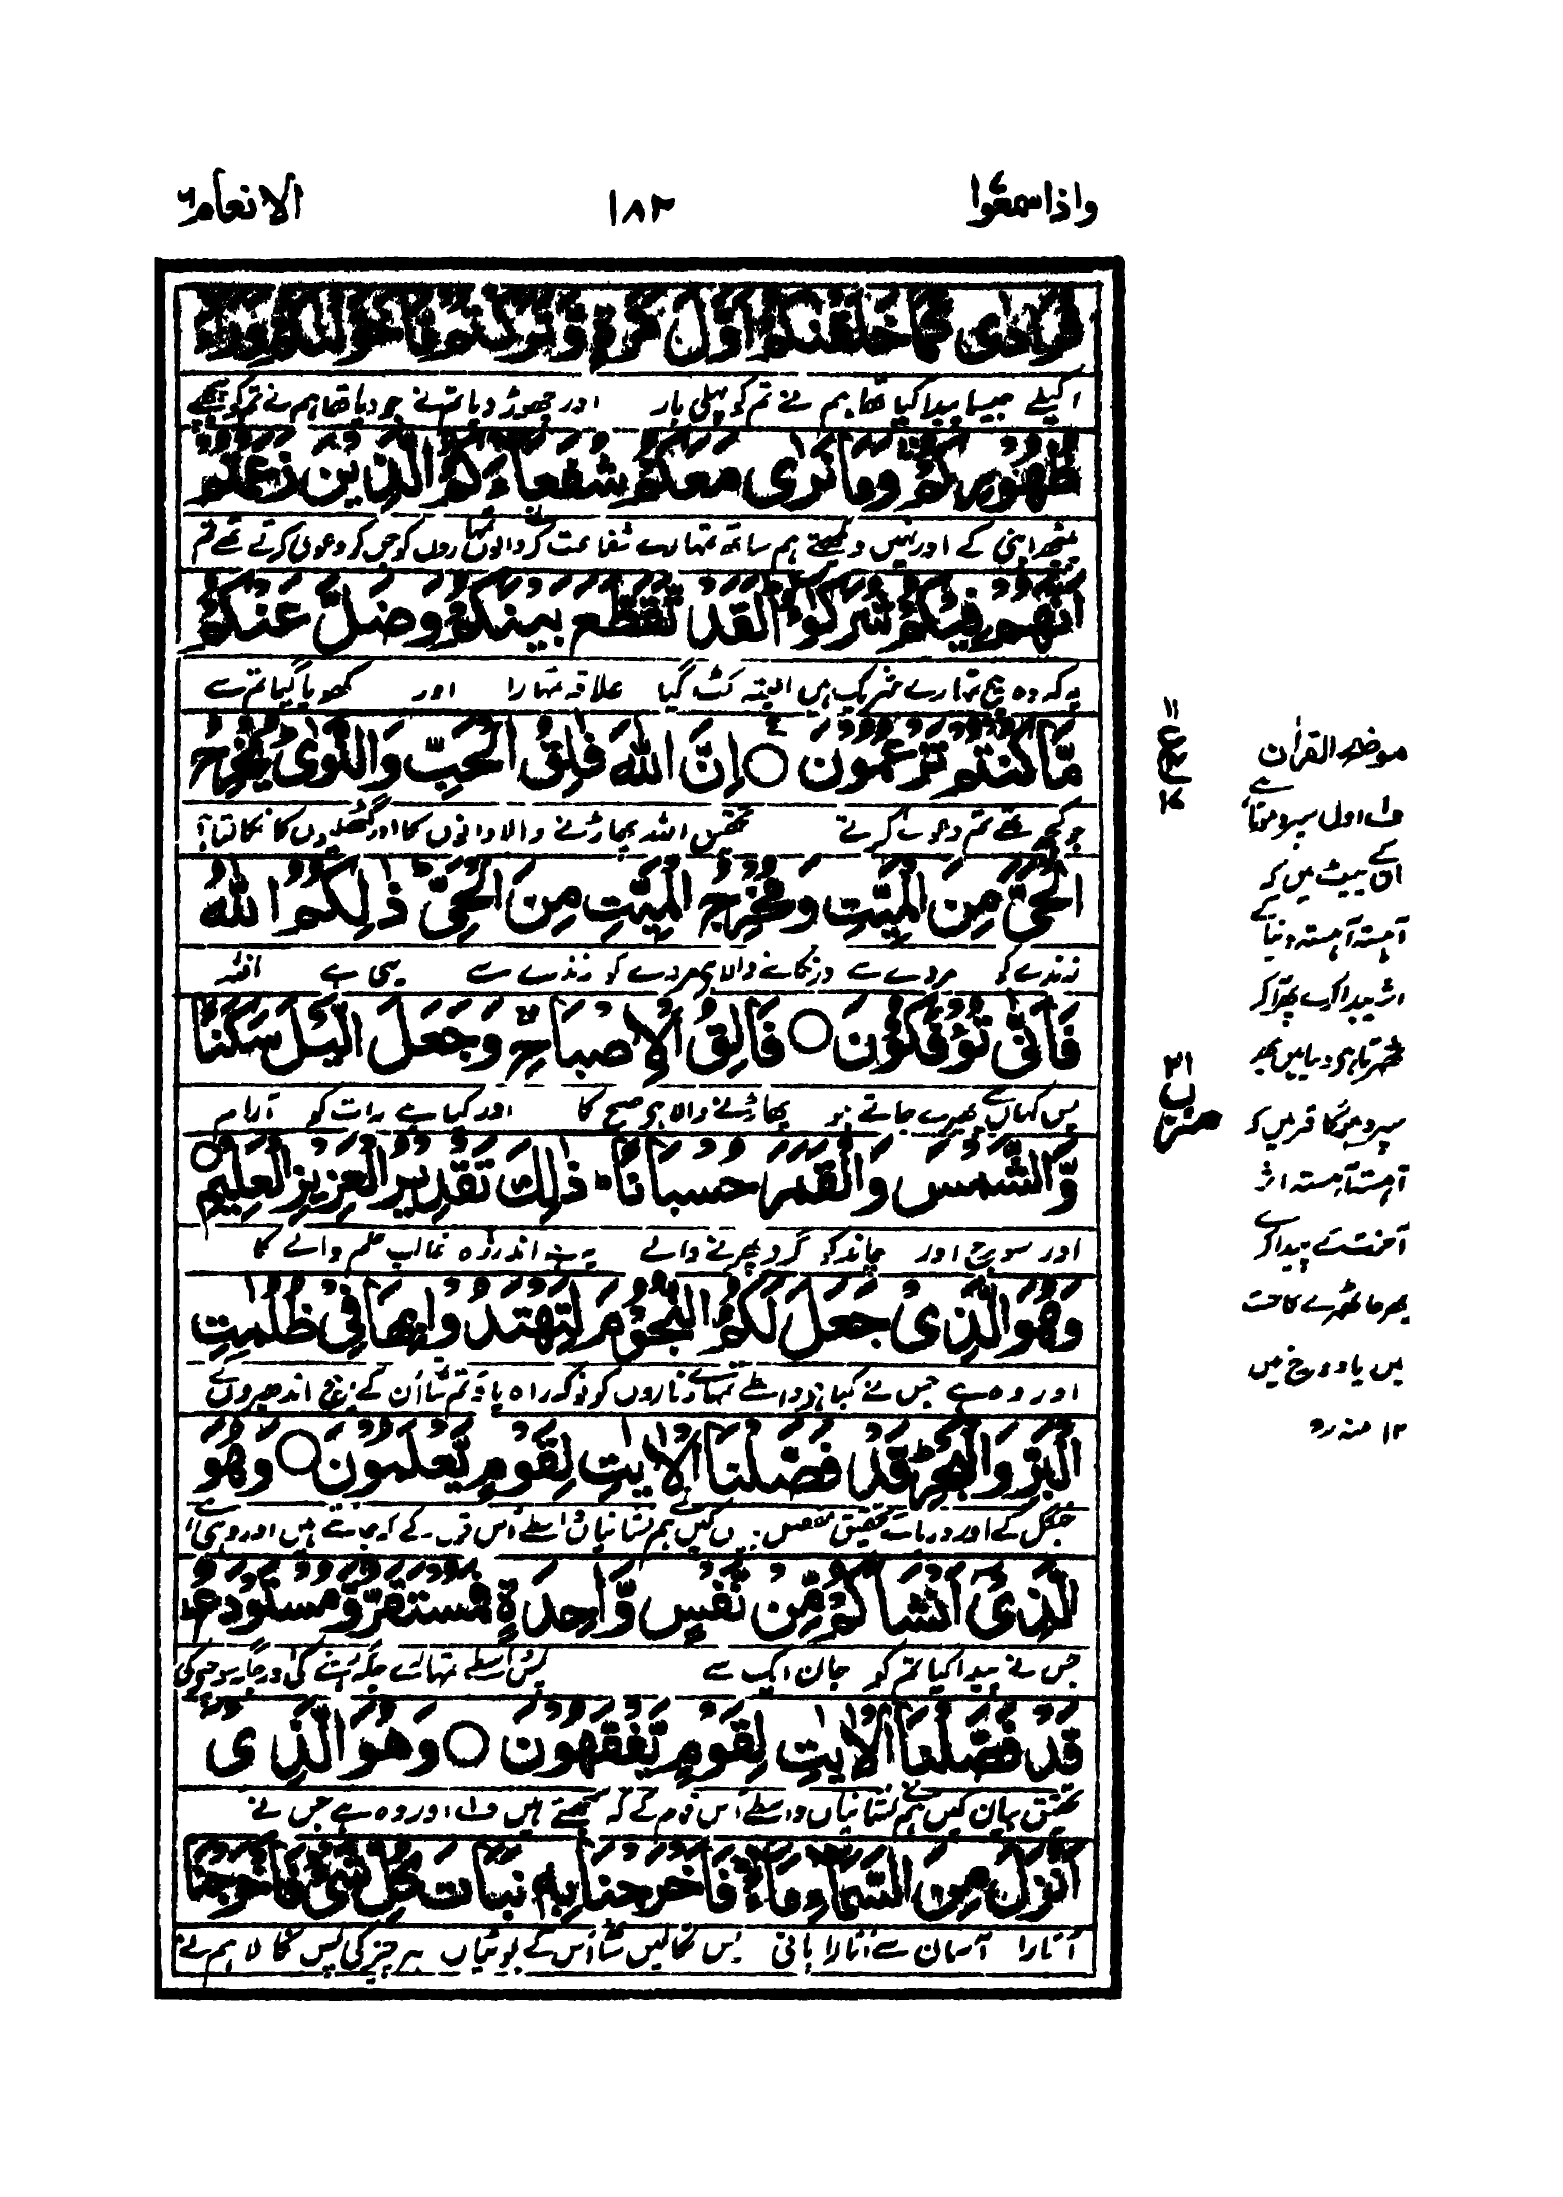 واذا سمعوا
۱۸۲
الانعام ٦
فُرَادٰى كَمَا خَلَقْنٰكُمْ اَوَّلَ مَرَّةٍ وَّتَرَكْتُمْ مَّا خَوَّلْنٰكُمْ وَرَآءَ
اکیلے جیسا پیدا کیا تھا ہم نے تم کو پہلی بار اور چھوڑ دیا تم نے جو دیا تھا ہم نے تم کو پیچھے
ظُهُوْرِكُمْ وَمَا نَرٰى مَعَكُمْ شُفَعَآءَكُمُ الَّذِيْنَ زَعَمْتُمْ
پیٹھ اپنی کے اور نہیں دیکھتے ہم ساتھ تمہارے شفاعت کرنے والوں تمہاروں کو جن کو دعویٰ کرتے تھے تم
اَنَّهُمْ فِيْكُمْ شُرَكٰٓؤُا لَقَدْ تَّقَطَّعَ بَيْنَكُمْ وَضَلَّ عَنْكُمْ
یہ کہ وہ بیچ تمہارے شریک ہیں البتہ کٹ گیا علاقہ تمہارا اور کھویا گیا تم سے
مَّا كُنْتُمْ تَزْعُمُوْنَ ○ اِنَّ اللّٰهَ فَالِقُ الْحَبِّ وَالنَّوٰى يُخْرِجُ
جو کچھ تھے تم دعویٰ کرتے تحقیق اللہ پھاڑنے والا دانوں کا اور گٹھلیوں کا نکالتا ہے
الْحَيَّ مِنَ الْمَيِّتِ وَمُخْرِجُ الْمَيِّتِ مِنَ الْحَيِّ ذٰلِكُمُ اللّٰهُ
زندے کو مردے سے اور نکالنے والا ہے مردے کو زندے سے یہی ہے اللہ
فَاَنّٰى تُؤْفَكُوْنَ ○ فَالِقُ الْاِصْبَاحِ وَجَعَلَ الَّيْلَ سَكَنًا
پس کہاں پھیرے جاتے ہو پھاڑنے والا ہے صبح کا اور کیا ہے رات کو آرام
وَّالشَّمْسَ وَالْقَمَرَ حُسْبَانًا ذٰلِكَ تَقْدِيْرُ الْعَزِيْزِ الْعَلِيْمِ ○
اور سورج اور چاند کو گرد پھرنے والے یہ ہے اندازہ غالب علم والے کا
وَهُوَ الَّذِيْ جَعَلَ لَكُمُ النُّجُوْمَ لِتَهْتَدُوْا بِهَا فِيْ ظُلُمٰتِ
اور وہ ہے جس نے کیا ہے واسطے تمہارے تاروں کو تو کہ راہ پاؤ تم ساتھ اُن کے بیچ اندھیروں
الْبَرِّ وَالْبَحْرِ قَدْ فَصَّلْنَا الْاٰيٰتِ لِقَوْمٍ يَّعْلَمُوْنَ ○ وَهُوَ
جنگل کے اور دریا کے تحقیق مفصل بیان کیں ہم نے نشانیاں واسطے اُس قوم کے کہ جانتے ہیں اور وہی ہے
الَّذِيْٓ اَنْشَاَكُمْ مِّنْ نَّفْسٍ وَّاحِدَةٍ فَمُسْتَقَرٌّ وَّمُسْتَوْدَعٌ
جس نے پیدا کیا تم کو جان ایک سے پس واسطے تمہارے جگہ رہنے کی اور جگہ سونپے کی
قَدْ فَصَّلْنَا الْاٰيٰتِ لِقَوْمٍ يَّفْقَهُوْنَ ○ وَهُوَ الَّذِيْٓ
تحقیق بیان کیں ہم نے نشانیاں واسطے اُس قوم کے کہ سمجھتے ہیں ف اور وہ ہے جس نے
اَنْزَلَ مِنَ السَّمَآءِ مَآءً فَاَخْرَجْنَا بِهٖ نَبَاتَ كُلِّ شَيْءٍ فَاَخْرَجْنَا
اُتارا آسمان سے پانی پس نکالیں ساتھ اُس کے بوٹیاں ہر چیز کی پس نکالا ہم نے
۱۱
ع
۱۷
موضح القرآن
ف اول سپرد ہوتا ہے
ماں کے پیٹ میں کہ
آہستہ آہستہ دنیا کے
اثر پیدا کرے پھر آ کر
ٹھہرتا ہے دنیا میں پھر
سپرد ہوگا قبر میں کہ
آہستہ آہستہ اثر
آخرت کے پیدا کرے
پھر جا ٹھہرے گا جنت
میں یا دوزخ میں
۱۲ منہ رح